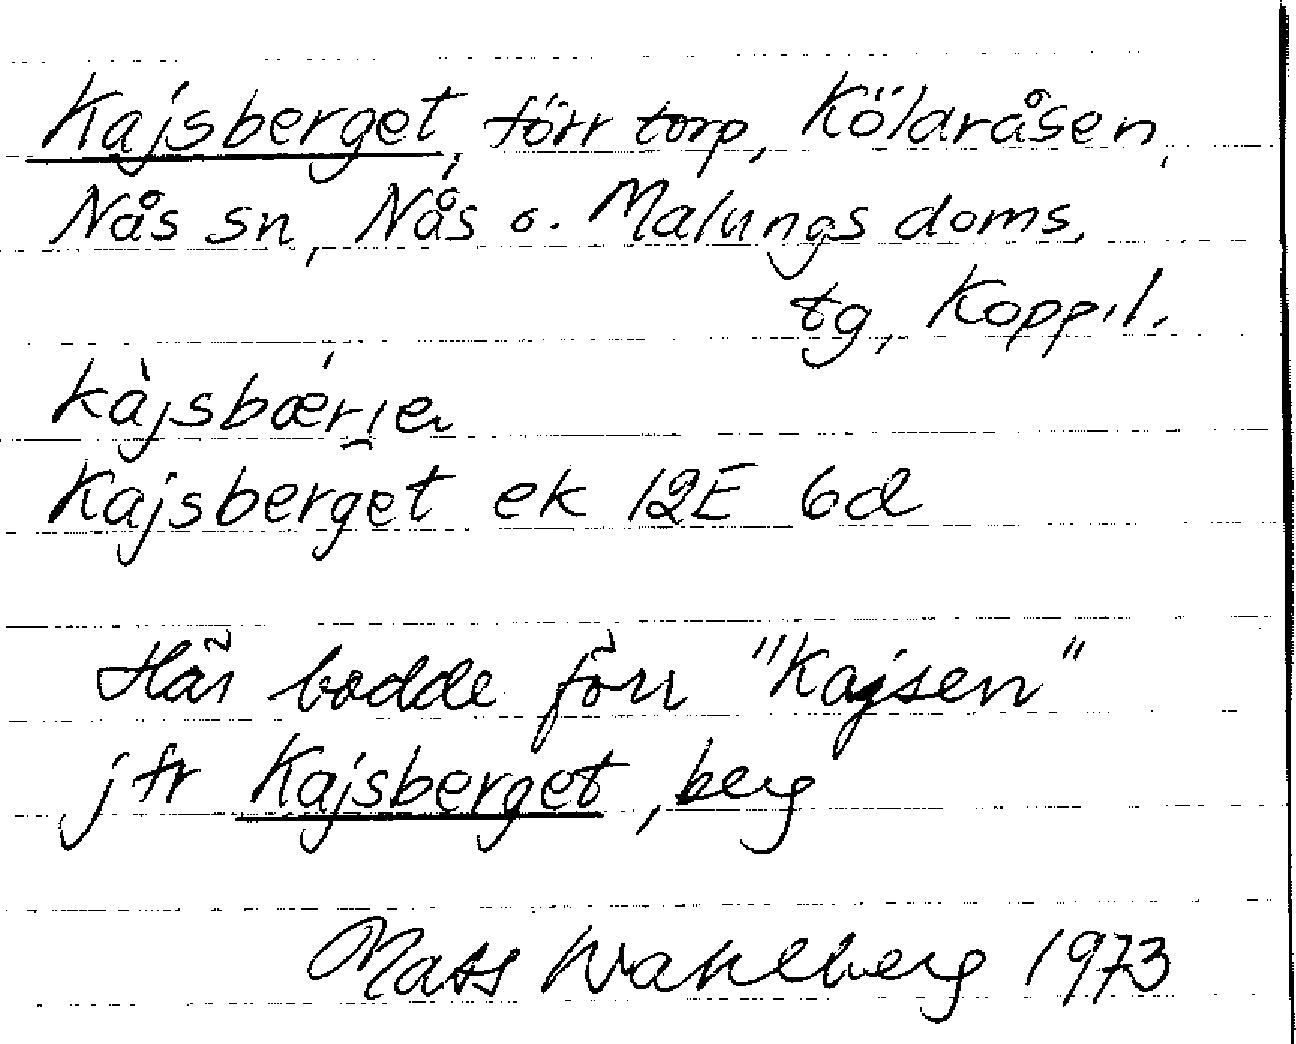 Kajsberget, förr torp, Kölaråsen,
Nås sn, Nås o. Malungs doms.
tg, Kopp. l.
kàjsbæŕi̯en
Kajsberget ek 12E 6d
Här bodde förr "Kajsen"
jfr Kajsberget, berg
Mats Wahlberg 1973